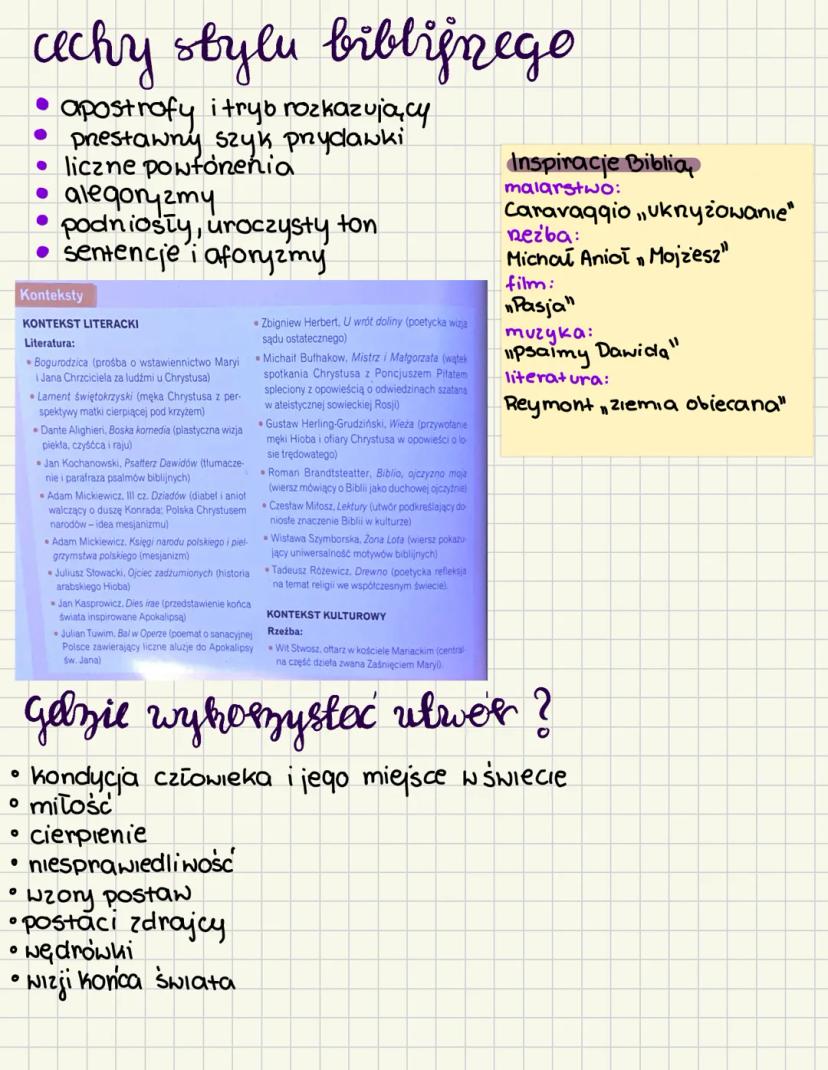 cechy stylu biblijnego
• apostrofy i tryb rozkazujący
• przestawny szyk przydawki
• liczne powtórzenia
• alegoryzmy
• podniosły, uroczysty ton
• sentencje i aforyzmy
Inspiracje Biblią
malarstwo:
Caravaggio „ukrzyżowanie"
rzeźba:
Michał Anioł „Mojżesz"
film:
„Pasja"
muzyka:
„psalmy Dawida"
literatura:
Reymont „ziemia obiecana"
Konteksty
KONTEKST LITERACKI
Literatura:
• Bogurodzica (prośba o wstawiennictwo Maryi
i Jana Chrzciciela za ludźmi u Chrystusa)
• Lament świętokrzyski (męka Chrystusa z per-
spektywy matki cierpiącej pod krzyżem)
• Dante Alighieri, Boska komedia (plastyczna wizja
piekła, czyśćca i raju)
• Jan Kochanowski, Psałterz Dawidów (tłumacze-
nie i parafraza psalmów biblijnych)
• Adam Mickiewicz, III cz. Dziadów (diabeł i anioł
walczący o duszę Konrada; Polska Chrystusem
narodów – idea mesjanizmu)
• Adam Mickiewicz, Księgi narodu polskiego i piel-
grzymstwa polskiego (mesjanizm)
• Juliusz Słowacki, Ojciec zadżumionych (historia
arabskiego Hioba)
• Jan Kasprowicz, Dies irae (przedstawienie końca
świata inspirowane Apokalipsą)
• Julian Tuwim, Bal w Operze (poemat o sanacyjnej
Polsce zawierający liczne aluzje do Apokalipsy
św. Jana)
• Zbigniew Herbert, U wrót doliny (poetycka wizja
sądu ostatecznego)
• Michaił Bułhakow, Mistrz i Małgorzata (wątek
spotkania Chrystusa z Poncjuszem Piłatem
spleciony z opowieścią o odwiedzinach szatana
w ateistycznej sowieckiej Rosji)
• Gustaw Herling-Grudziński, Wieża (przywołanie
męki Hioba i ofiary Chrystusa w opowieści o lo-
sie trędowatego)
• Roman Brandtsteatter, Biblio, ojczyzno moja
(wiersz mówiący o Biblii jako duchowej ojczyźnie)
• Czesław Miłosz, Lektury (utwór podkreślający do-
niosłe znaczenie Biblii w kulturze)
• Wisława Szymborska, Żona Lota (wiersz pokazu-
jący uniwersalność motywów biblijnych)
• Tadeusz Różewicz, Drewno (poetycka refleksja
na temat religii we współczesnym świecie).
KONTEKST KULTUROWY
Rzeźba:
• Wit Stwosz, ołtarz w kościele Mariackim (central-
na część dzieła zwana Zaśnięciem Maryi).
Gdzie wykorzystać utwór?
• kondycja człowieka i jego miejsce w świecie
• miłość
• cierpienie
• niesprawiedliwość
• wzory postaw
• postaci zdrajcy
• wędrówki
• wizji końca świata